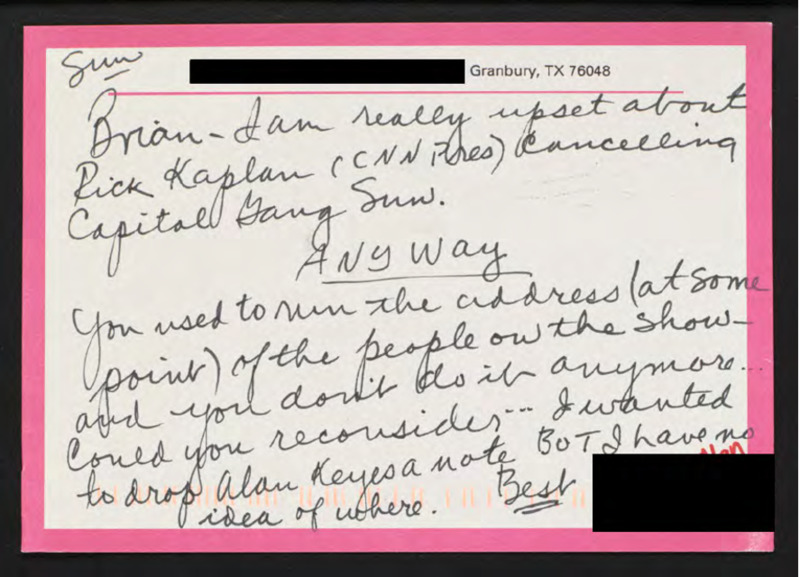 Sun
Granbury, TX 76048
Brian - I am really upset about
Rick Kaplan (CNN Pres) Cancelling
Capital Gang Sun.
ANY Way
You used to run the address (at some
point) of the people on the show -
and you don't do it anymore...
Could you reconsider... I wanted
to drop Alan Keyes a note BUT I have no
idea of where. Best